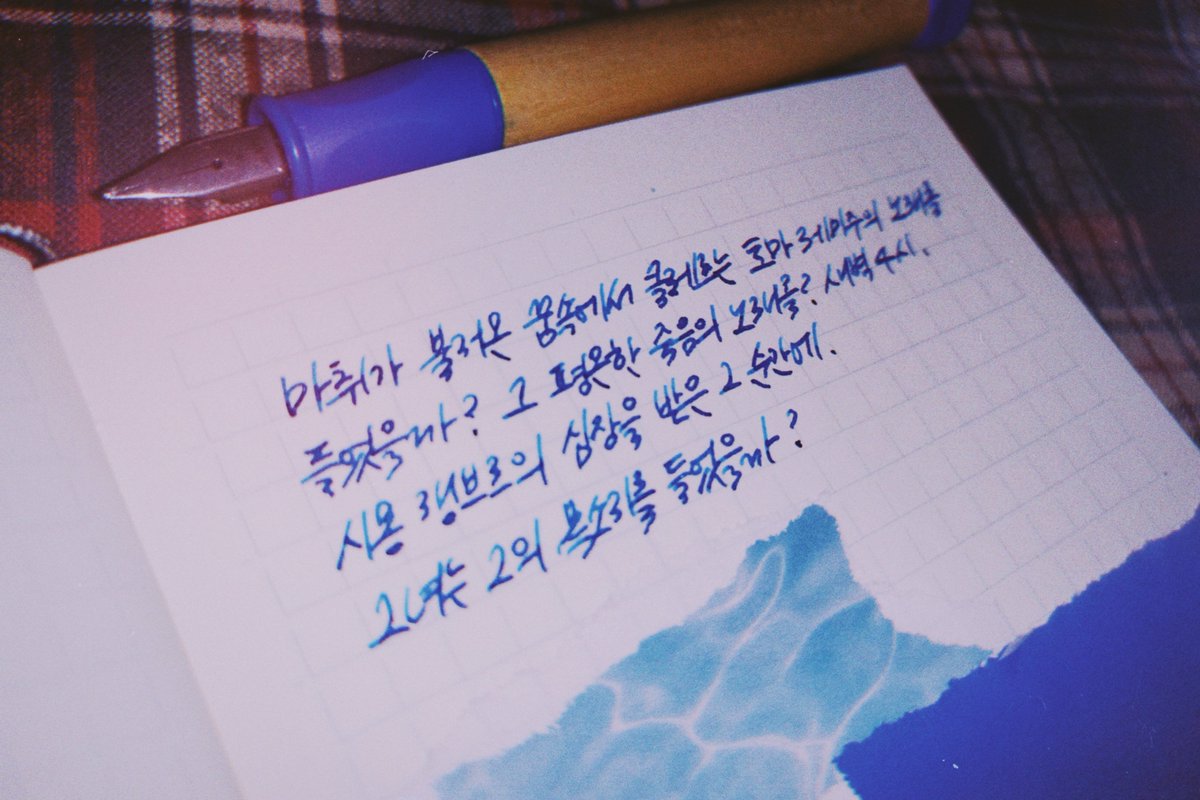 마취가 불러온 꿈속에서 클레르는 토마 레미주의 노래를
들었을까? 그 평온한 죽음의 노래를? 새벽 4시.
시몽 랭브르의 심장을 받은 그 순간에.
그녀는 그의 목소리를 들었을까?